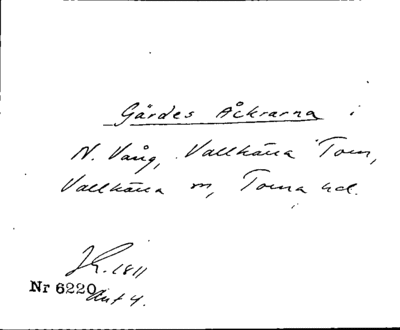 Gårdes Åkrarna i
N. Vång, Vallkärra Torn,
Vallkärra sn, Torna hd.
1811
Nr 6220
Akt 4.